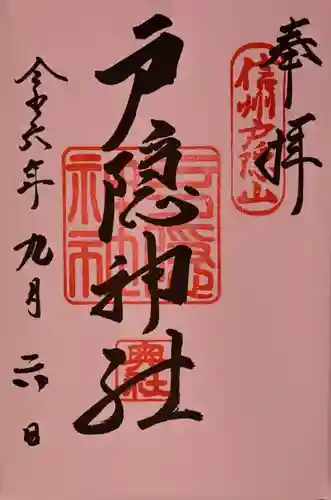 奉拝
信州戸隠山
戸隠神社
戸隠
神社
奥社
令和六年九月二六日